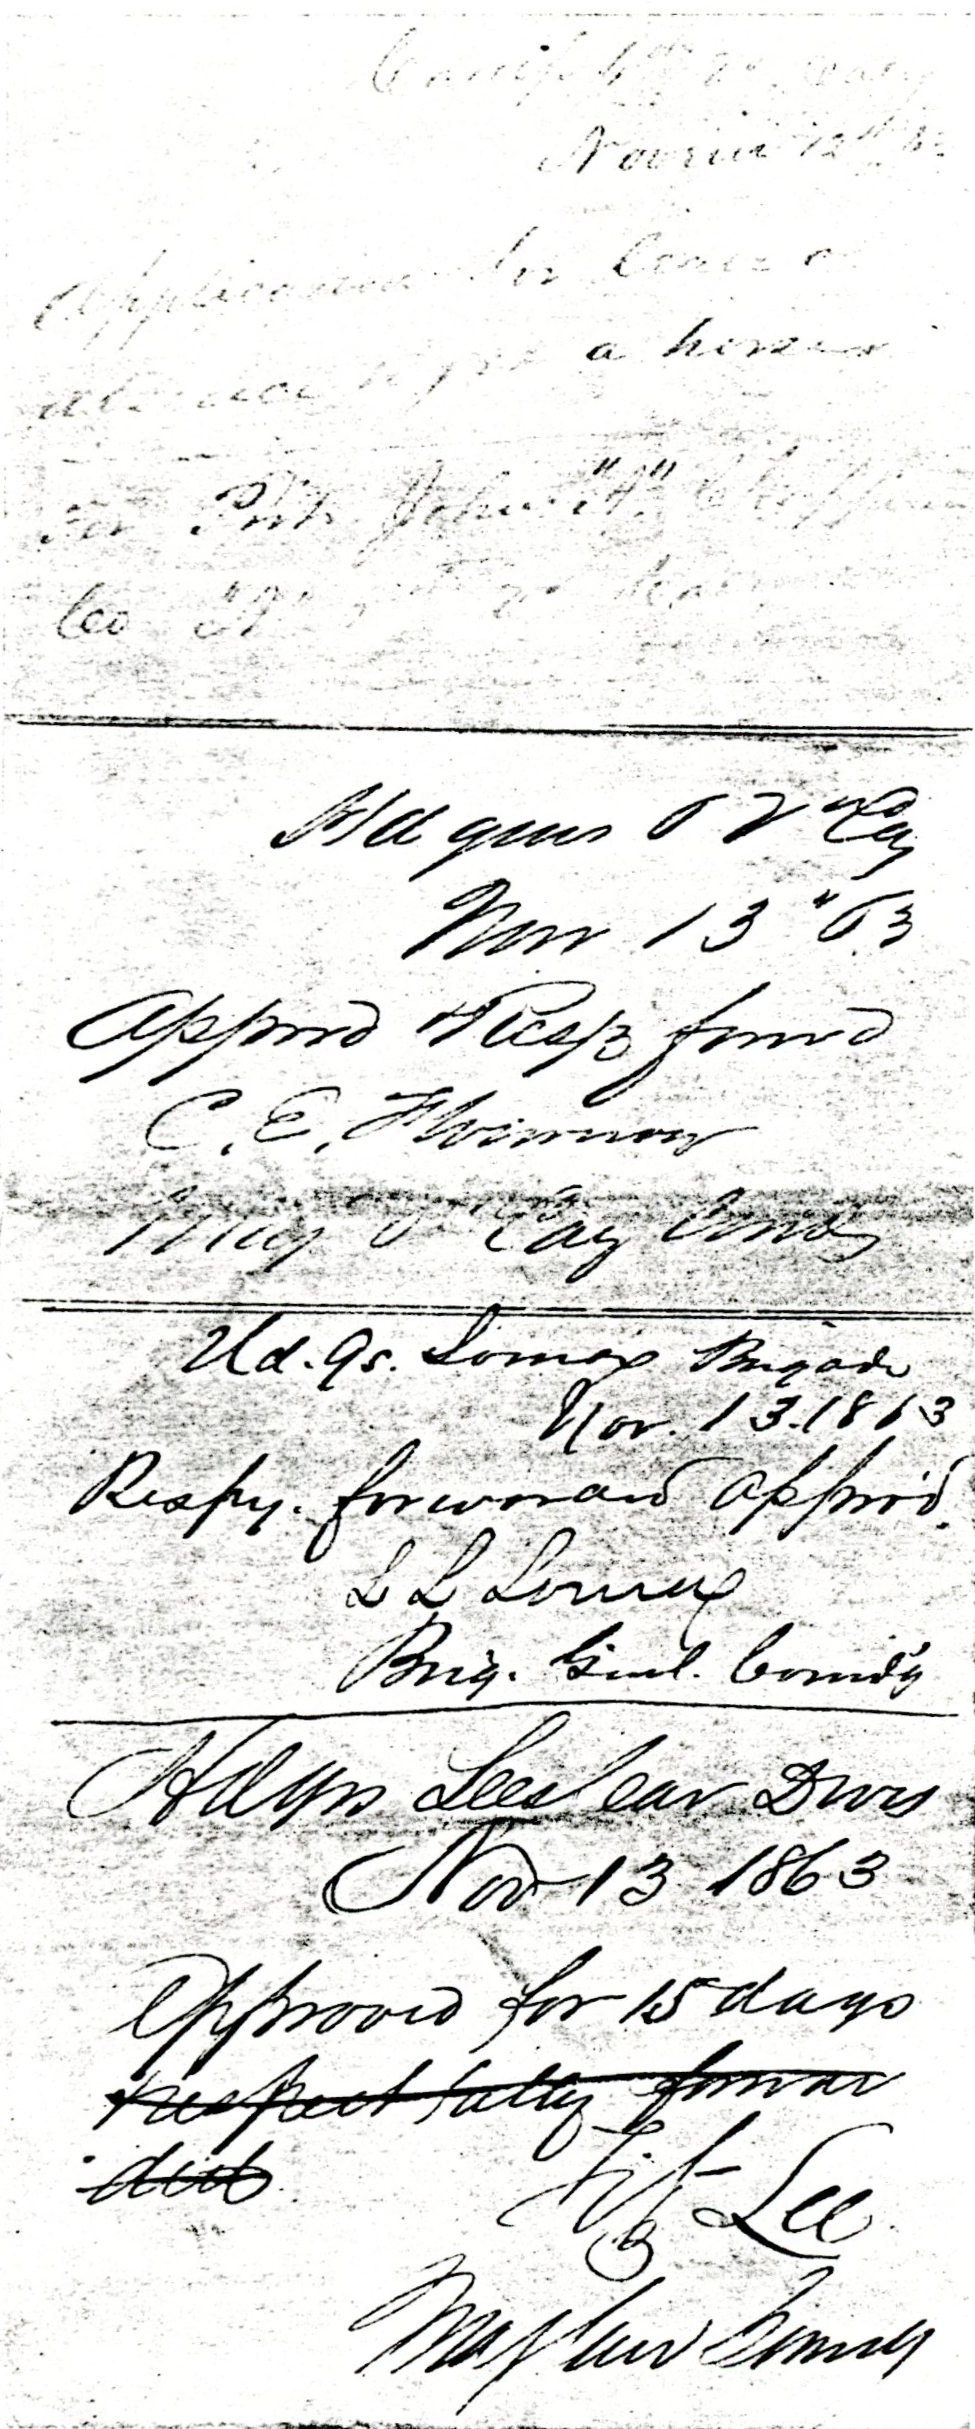 Camp
12th
Application for leave of
absence to get a horse
for Priv. John "A"
Co
Hd qrs 6 V Cay
Nov 13" 63
Approvd & Resp forwd
C. E. Flournoy
Maj 6" Cay Comdg
Hd. Qs. Lomax Brigade
Nov. 13. 1863
Respy. forward approvd.
L L Lomax
Brig. Genl. Comd'g
Hdqrs Lees Cav Divis
Nov 13 1863
Approved for 15 days
respectfully forwar
ded
Fitz Lee
Maj Genl Comdg